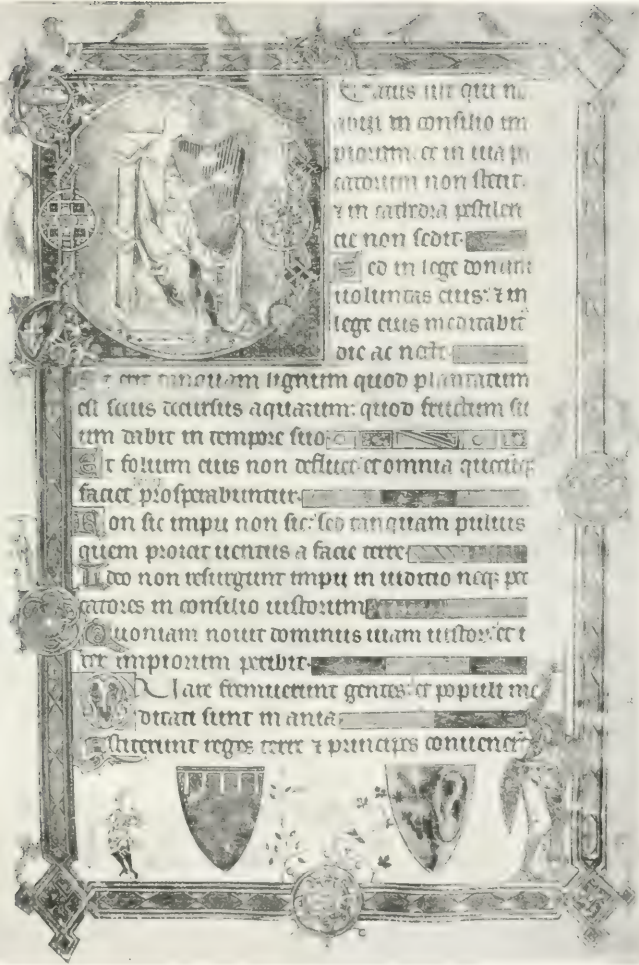 Beatus uir qui n
abiit in consilio im
piorum. et in uia p
catorum non stetit.
⁊ in cathedra pestilen
cie non sedit.
Sed in lege domini
uoluntas eius: ⁊ in
lege eius meditabit
die ac nocte.
Et erit tanquam lignum quod plantatum
est secus decursus aquarum: quod fructum su
um dabit in tempore suo
Et folium eius non defluet et omnia quecūqꝫ
faciet prosperabuntur.
Non sic impii non sic: sed tanquam puluis
quem proicit uentus a facie terre
Ideo non resurgunt impii in iudicio neqꝫ pec
catores in consilio iustorum
Quoniam nouit dominus uiam iustoꝝ: et i
ter impiorum peribit.
Quare fremuerunt gentes: et populi me
ditati sunt inania
Astiterunt reges terre ⁊ principes conuener